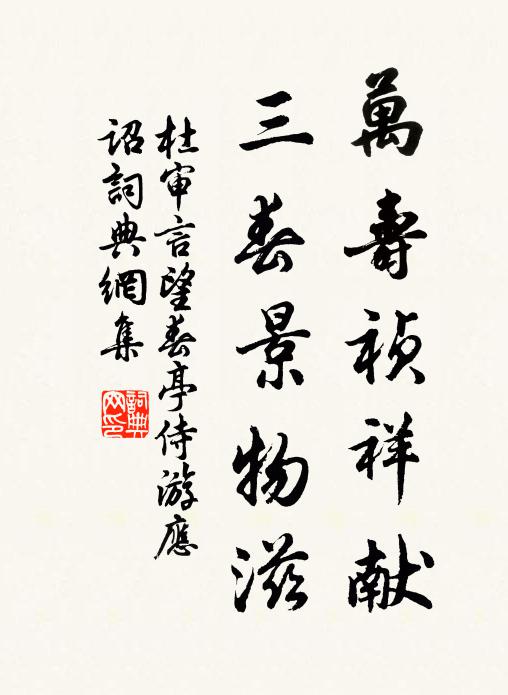 萬壽祯祥献
三春景物滋
杜审言望春亭侍游應
诏詞典網集
詞典
网印